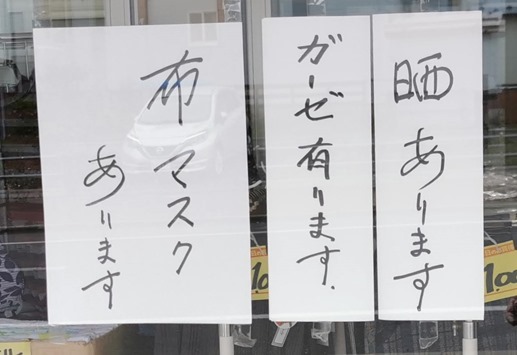 晒あります
ガーゼ有ります.
布マスク
あります